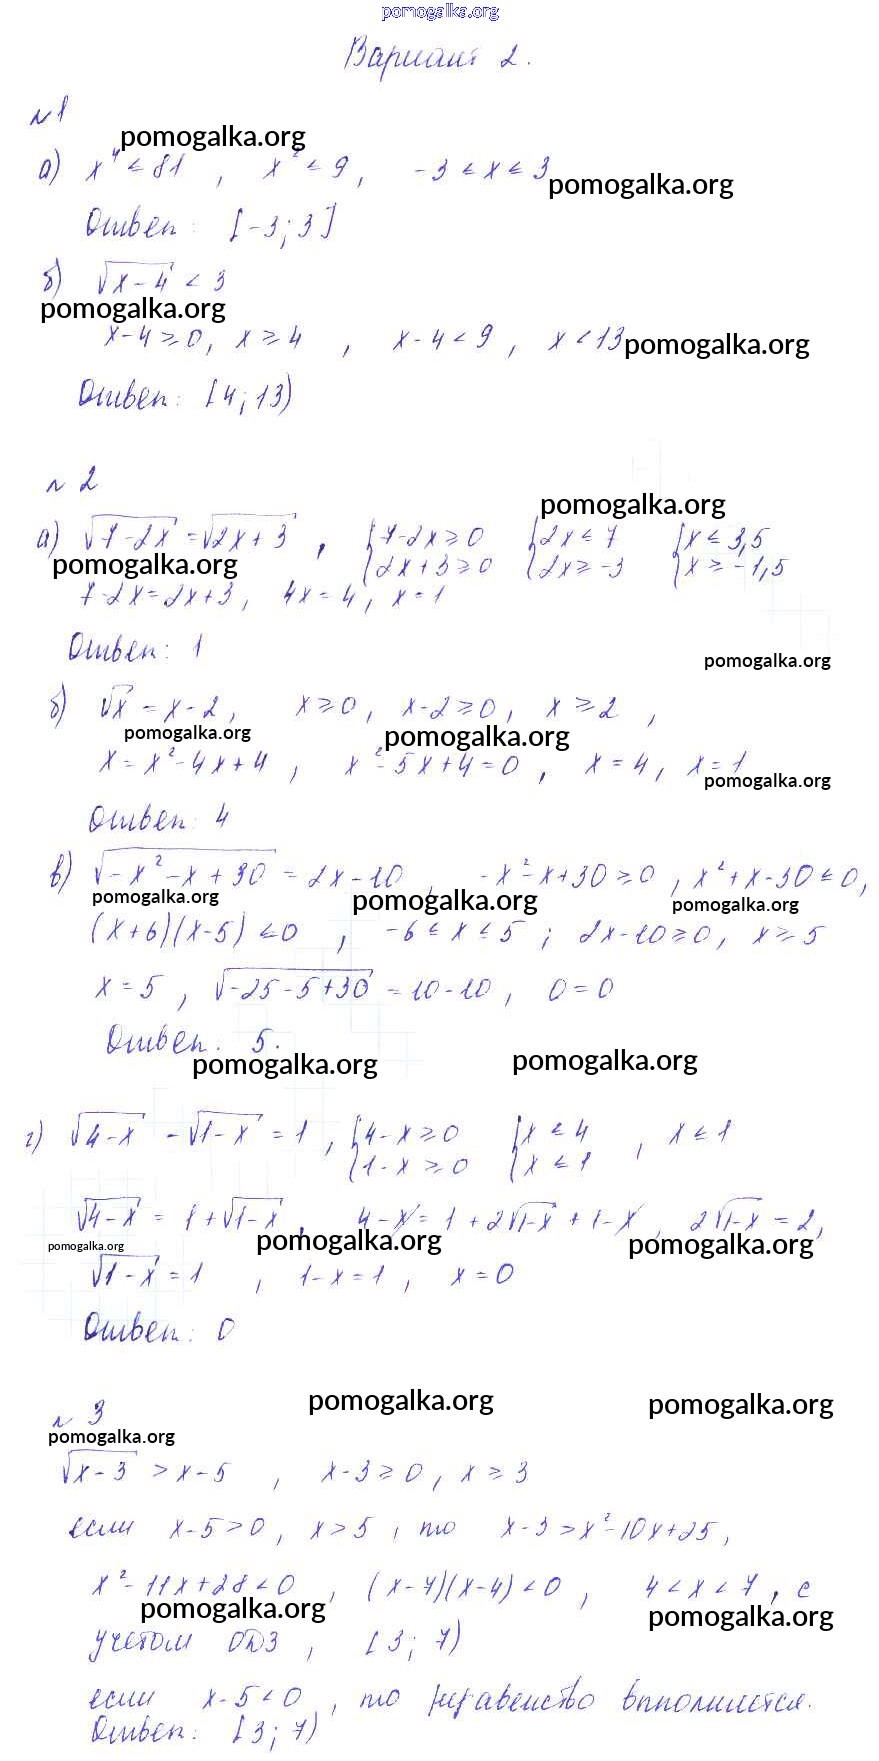 pomogalka.org
Вариант 2.
№1
pomogalka.org
а) x⁴ ≤ 81 , x² ≤ 9, -3 ≤ x ≤ 3
pomogalka.org
Ответ: [-3; 3]
б) √(x-4) < 3
pomogalka.org
x-4 ≥ 0, x ≥ 4 , x-4 < 9 , x < 13
pomogalka.org
Ответ: [4; 13)
№ 2
pomogalka.org
а) √(7-2x) = √(2x+3) , { 7-2x ≥ 0 { 2x ≤ 7 { x ≤ 3,5
pomogalka.org { 2x+3 ≥ 0 { 2x ≥ -3 { x ≥ -1,5
7-2x = 2x+3, 4x = 4, x = 1
Ответ: 1
pomogalka.org
б) √x = x-2, x ≥ 0, x-2 ≥ 0, x ≥ 2 ,
pomogalka.org pomogalka.org
x = x²-4x+4 , x²-5x+4=0 , x = 4, x = 1
pomogalka.org
Ответ: 4
в) √(-x²-x+30) = 2x-10 , -x²-x+30 ≥ 0 , x²+x-30 ≤ 0,
pomogalka.org pomogalka.org pomogalka.org
(x+6)(x-5) ≤ 0 , -6 ≤ x ≤ 5 ; 2x-10 ≥ 0, x ≥ 5
x = 5 , √(-25-5+30) = 10-10 , 0 = 0
Ответ: 5.
pomogalka.org pomogalka.org
г) √(4-x) - √(1-x) = 1 , { 4-x ≥ 0 { x ≤ 4 , x ≤ 1
{ 1-x ≥ 0 { x ≤ 1
√(4-x) = 1+√(1-x) , 4-x = 1+2√(1-x)+1-x , 2√(1-x) = 2,
pomogalka.org pomogalka.org pomogalka.org
√(1-x) = 1 , 1-x = 1 , x = 0
Ответ: 0
pomogalka.org pomogalka.org
№ 3
pomogalka.org
√(x-3) > x-5 , x-3 ≥ 0, x ≥ 3
если x-5 > 0, x > 5 , то x-3 > x²-10x+25,
x²-11x+28 < 0 , (x-7)(x-4) < 0 , 4 < x < 7 , с
pomogalka.org pomogalka.org
учетом ОДЗ , [3; 7)
если x-5 < 0 , то неравенство вполняется.
Ответ: [3; 7)